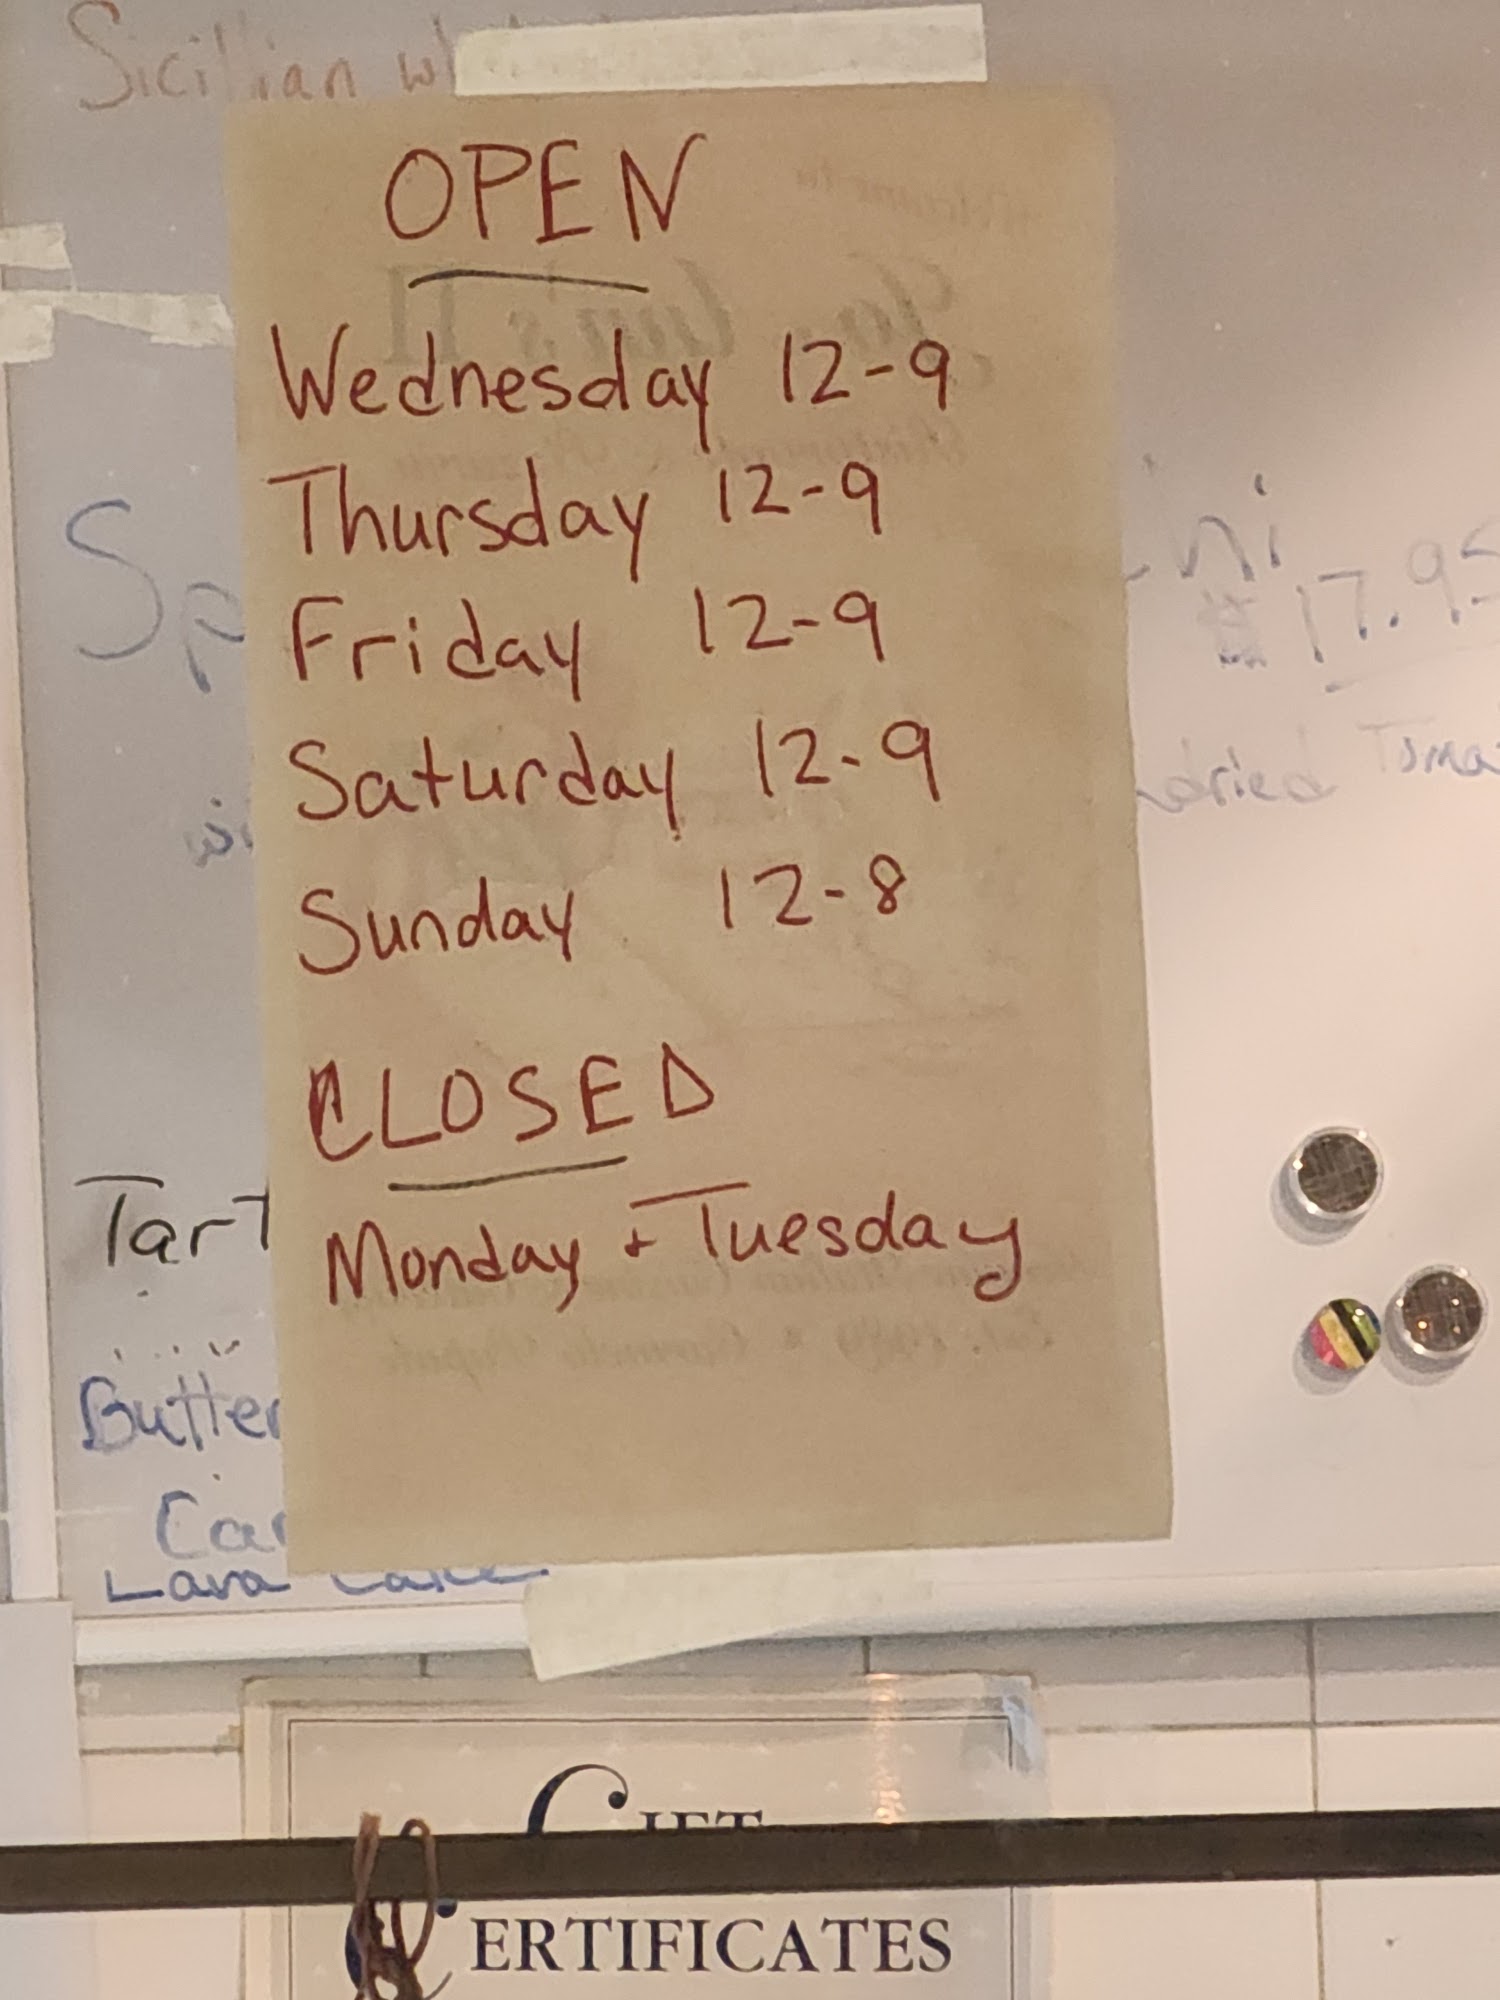 Sicilian
OPEN
Wednesday 12-9
Thursday 12-9
Friday 12-9
Saturday 12-9
Sunday 12-8
CLOSED
Monday + Tuesday
$17.95
dried Toma
Tart
Butter
Car
Lava Cake
GIFT
CERTIFICATES